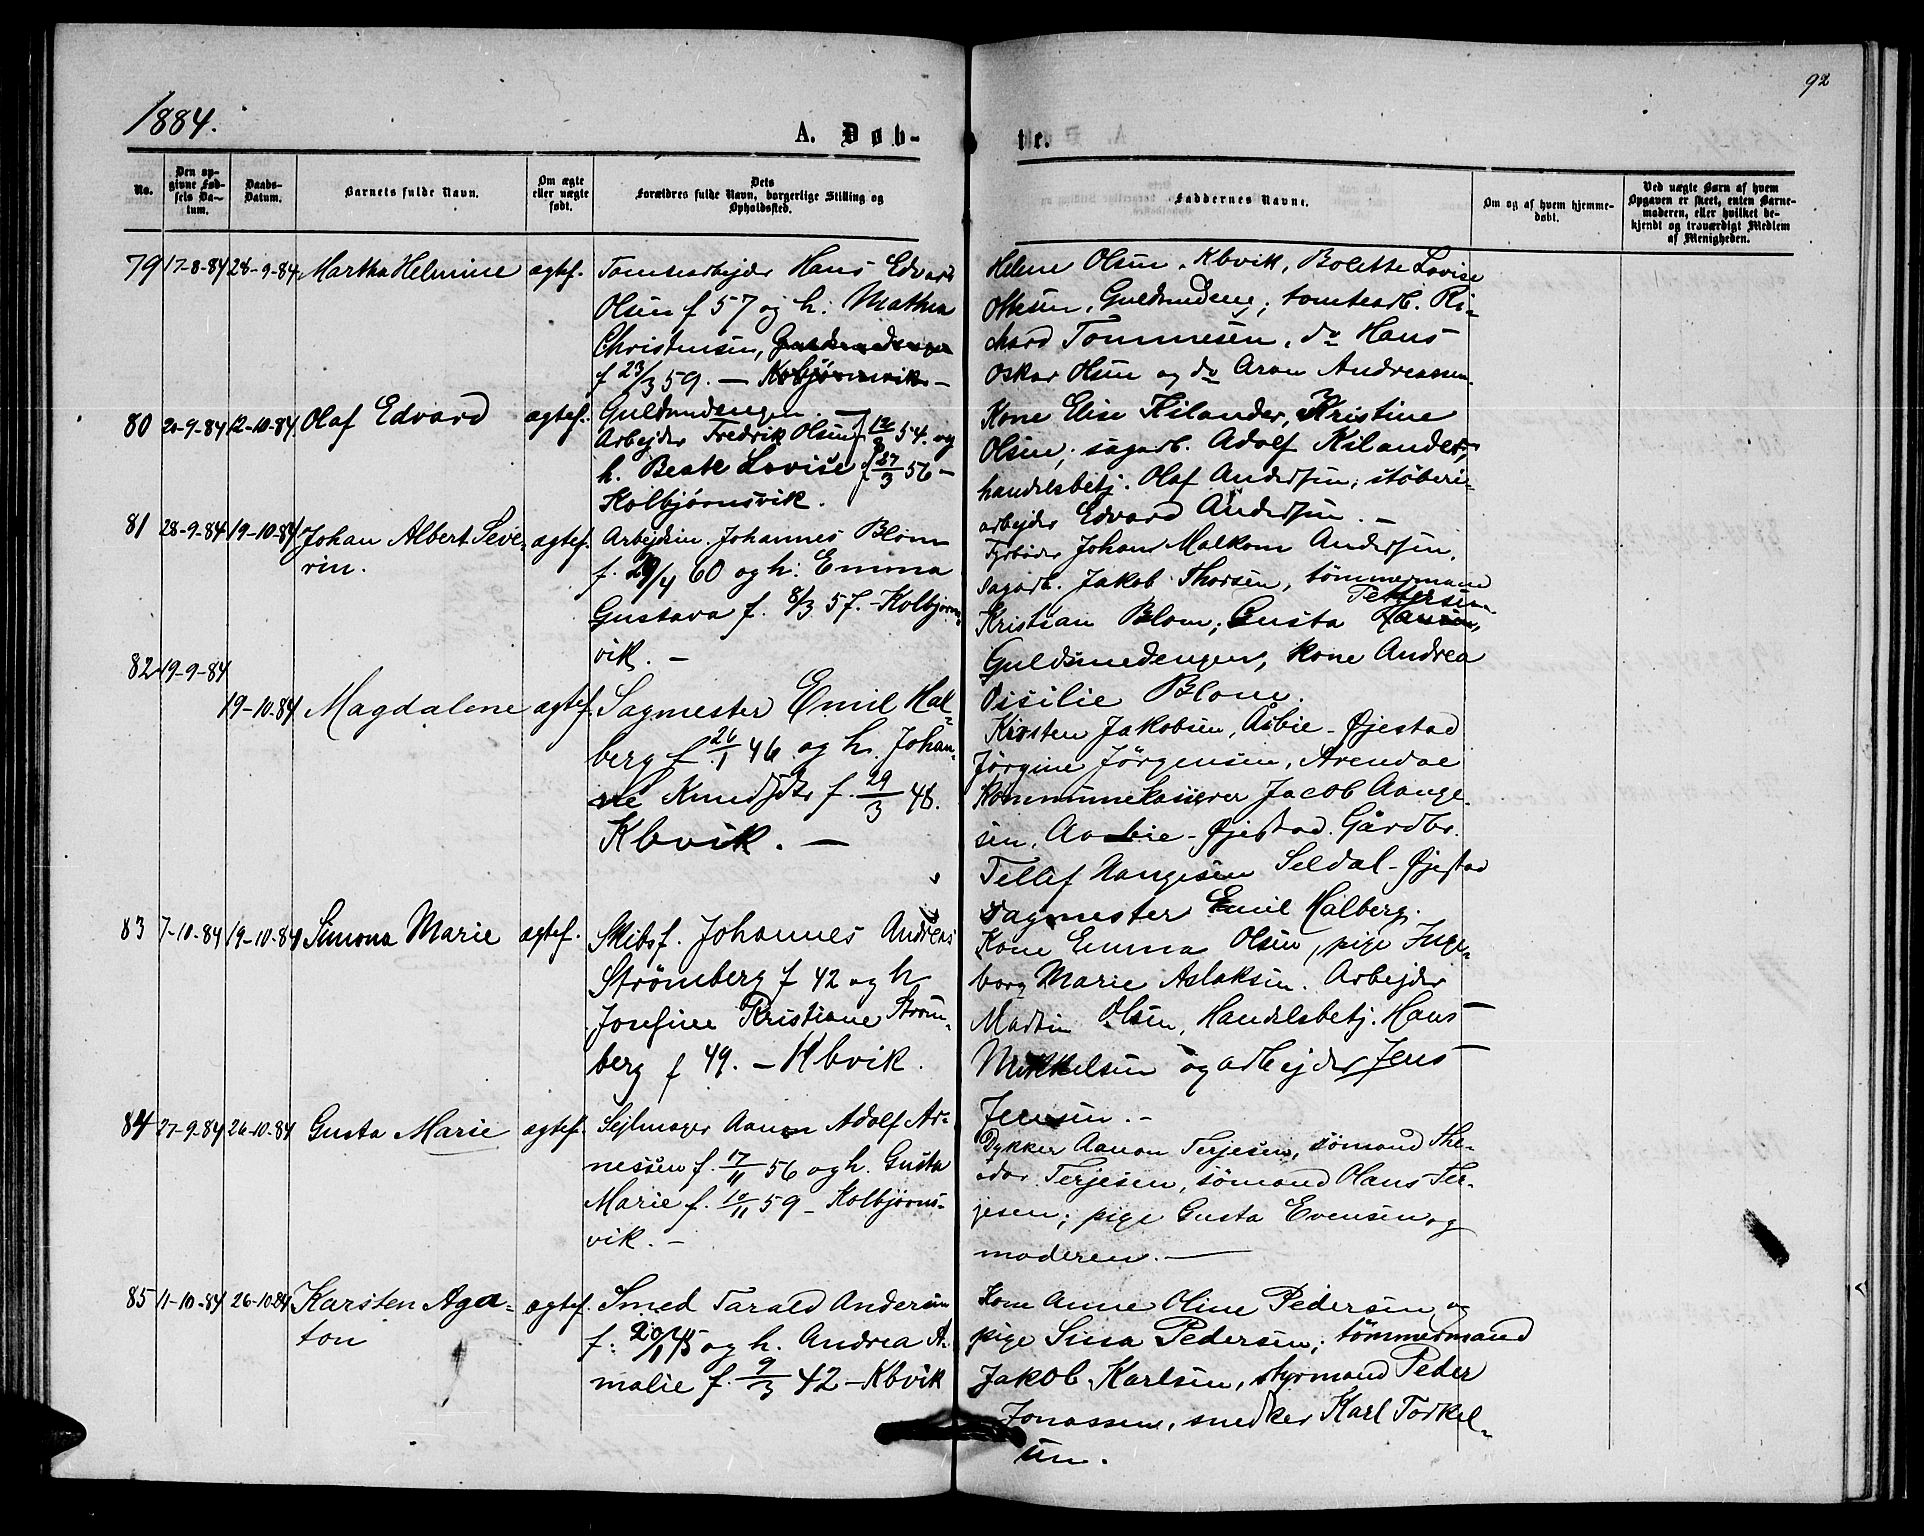 92
1884.
A. Døb-
te.
No.
Den op-
givne Fød-
sels Da-
tum.
Daabs-
Datum.
Barnets fulde Navn.
Om ægte
eller uægte
født.
Dets
Forældres fulde Navn, borgerlige Stilling og
Opholdssted.
Faddernes Navne.
Om og af hvem hjemme-
døbt.
Ved uægte Børn af hvem
Opgaven er skeet, enten Barne-
moderen, eller hvilket be-
kjendt og troværdigt Medlem
af Menigheden.
79 17-8-84 28-9-84 Martha Helmine ægtef.
Tomtearbejder Hans Edvard
Olsen f 57 og h. Mathea
Christensen, Guldsmedengen
f 23/3 59. — Kolbjørnsvik —
Guldsmedengen. —
Helene Olsen, Kbvik, Bolette Lovise
Olsen, Guldsmedeng; tomtearb. Ri-
chard Tommesen, do Hans
Oskar Olsen og do Aron Andreassen.
80 20-9-84 12-10-84 Olaf Edvard ægtef.
Arbejder Fredrik Olsen f 12/8 54. og
h. Beate Lovise f 27/3 56 —
Kolbjørnsvik.
Kone Elise Kilander, Kristine
Olsen; sagarb. Adolf Kilander,
handelsbetj. Olaf Andersen, støberi-
arbejder Edvard Andersen. —
81 28-9-84 19-10-84 Johan Albert Seve-
rin. ægtef.
Arbejdsm. Johannes Blom
f. 29/4 60 og h: Emma
Gustava f. 8/3 57. - Kolbjørns-
vik. —
Fyrbøder Johan Malkom Andersen,
sagarb. Jakob Thorsen, tømmermand
Kristian Blom; Gusta Hansen, Pettersen
Guldsmedengen, kone Andrea
Sisilie Blom.
82 19-9-84
19-10-84 Magdalene ægtef.
Sagmester Emil Hal-
berg f. 26/1 46 og h. Johan-
ne Knudsdtr f. 29/3 48.
Kbvik. —
Kirsten Jakobsen, Asbie - Øjestad
Jørgine Jørgensen, Arendal
Kommunekasserer Jacob Aange-
sen, Asbie - Øjestad. Gårdbr.
Tellef Aangesen Seldal - Øjestad
Sagmester Emil Halberg.
83 7-10-84 19-10-84 Simona Marie ægtef.
Skibsf. Johannes Andreas
Strømberg f 42 og h
Josefine Kristiane Strøm-
berg f 49. — Kbvik.
Kone Emma Olsen, pige Inge-
borg Marie Aslaksen. Arbejder
Martin Olsen, Handelsbetj. Hans
Mikkelsen og arbejder Jens
Jensen. —
84 27-9-84 26-10-84 Gusta Marie ægtef.
Sejlmager Aanon Adolf Ar-
nessen f. 17/11 56 og h. Gusta
Marie f. 10/11 59 - Kolbjørns-
vik. —
Dykker Aanon Terjesen, sømand The-
odor Terjesen, sømand Hans Ter-
jesen; pige Gusta Evensen og
moderen. —
85 11-10-84 26-10-84 Karsten Aga-
ton ægtef.
Smed Tarald Andersen
f. 20/1 45 og h. Andrea A-
malie f. 9/3 42 - Kbvik
Kone Anne Oline Pedersen og
pige Sina Pedersen; tømmermand
Jakob Karlsen, styrmand Peder
Jonassen, snedker Karl Torkel-
sen.